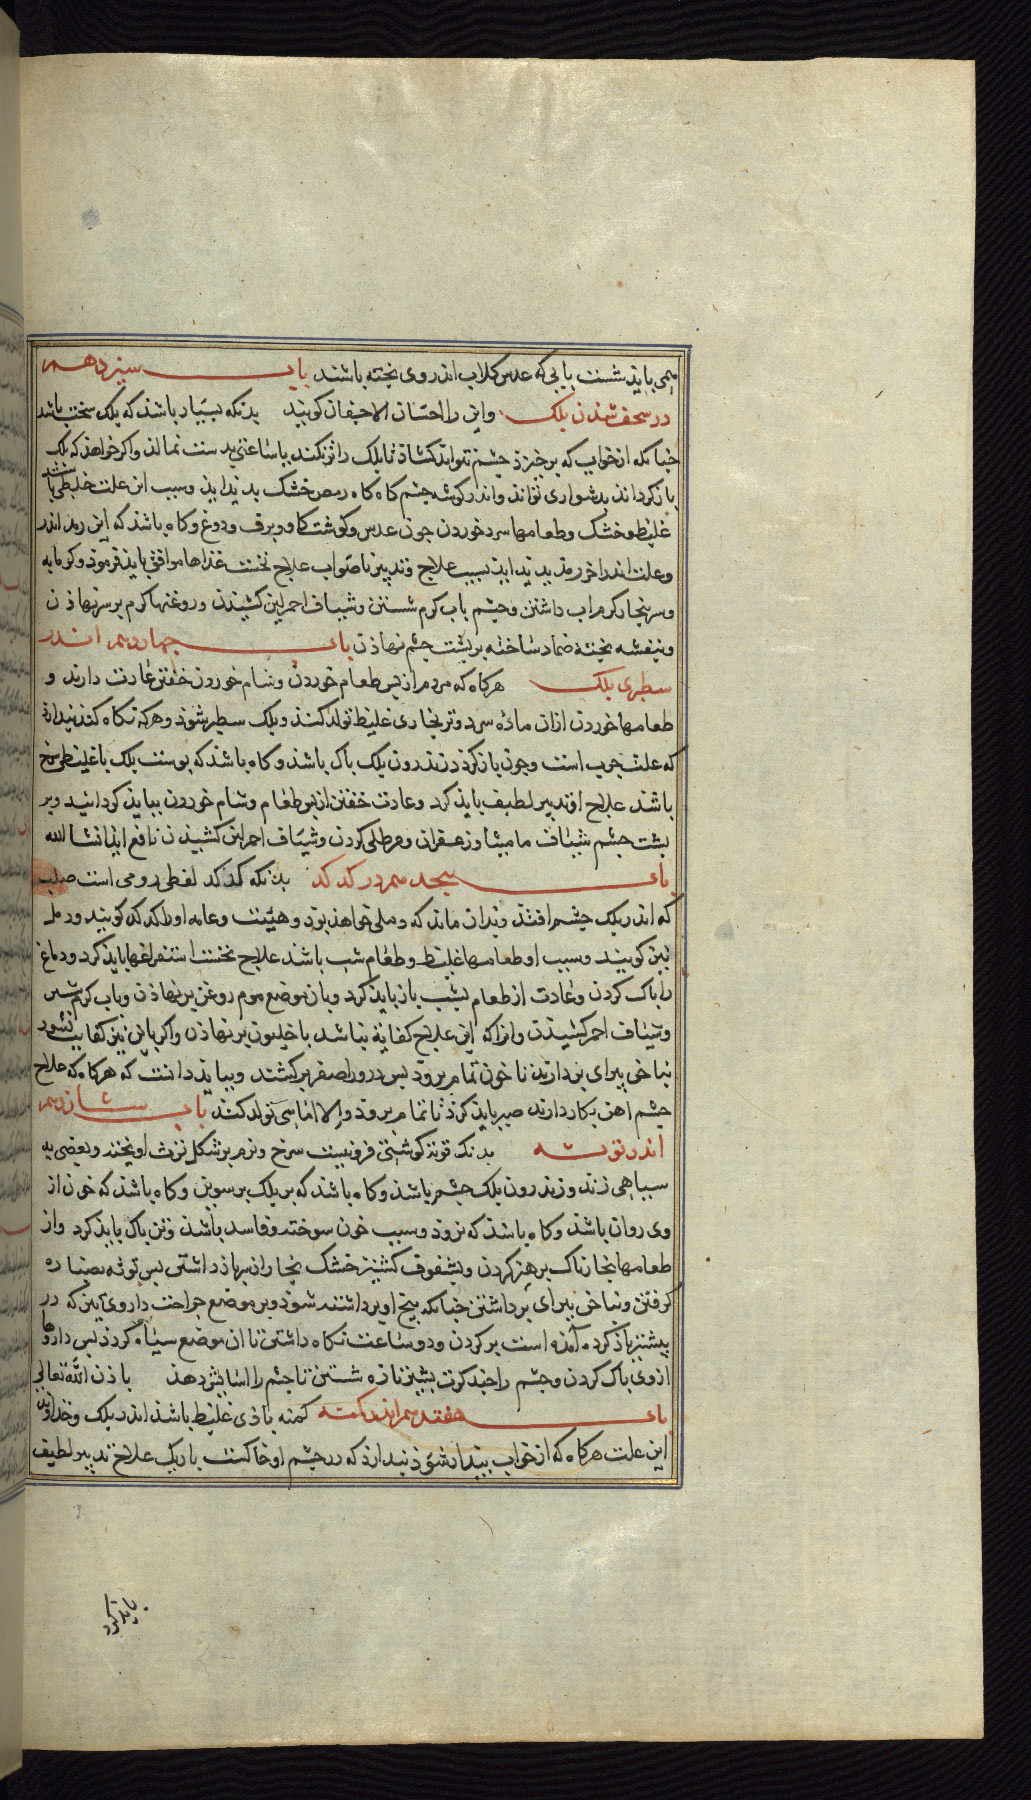 همی باید شست بابی که عدس کلاب اندروی بخته باشند باب سیزدهم
در سحف شدن بلک واین را احتسان الاجفان کویند بدنکه بسیار باشد که بلک سخت باشد
جنانکه از خواب که برخیزد جشم نتواند کشاد تا بلک را تر نکند یا ساعتی بدست نمالد واکر خواهد که بلک
باز کرداند بدشواری تواند واندر کوشه جشم کاه کاه رمص خشک بدید اید وسبب این علت خلطی باشد
غلیظ وخشک وطعامها سرد خوردن جون عدس وکوشت کاو وبرف ودوغ وکاه باشد که این رمد اندر
وعلت اندر اخر رمد بدید اید بسبب علاج وتدبیر ناصواب علاج نخست غذاها موافق باید فرمود وکرمابه
وسر بنجار کرم اب داشتن وجشم باب کرم شستن وشیاف احمر لین کشیدن وروغنها کرم بر سر نهاذن
وبنفشه بخته ضماد ساخته بر بشت جشم نهاذن باب جهاردهم اندر
سطبری بلک هرکاه که مردم از بس طعام خوردن وشام خوردن خفتن عادت دارند و
طعامها خوردن ازان ماده سرد وتر بخاری غلیظ تولد کند وبلک سطبر شود وهرکه نکاه کند بندارد
که علت جرب است وجون باز کرد اندرون بلک باک باشد وکاه باشد که بوست بلک با غلیظی سرخ
باشد علاج او تدبیر لطیف باید کرد وعادت خفتن از بس طعام وشام خوردن بباید کردانید وبر
بشت جشم شیاف مامیثا وزعفران ومر طلی کردن وشیاف احمر لین کشیذن نافع اید انشا الله
باب بنجدهم در کدکد بدنکه کدکد لفظی رومی است صلب
که اندر بلک جشم افتد وبدان ماند که دملی خواهد بود وهیئت وعامه اورا کدکد کویند ودمل
نیز کویند وسبب او طعامها غلیظ وطعام شب باشد علاج نخست استفراغها باید کرد ودماغ
را باک کردن وعادت از طعام بشب باز باید کرد وبان موضع موم روغن بر نهاذن وباب کرم شستن
وشیاف احمر کشیذن وانرا که این علاج کفایة نباشد باخلیون بر نهاذن واکر باین نیز کفایت نشود
بناخن بیرای بردارند تا خون تمام برود بس ذرور اصفر برکشند وبباید دانست که هرکاه که علاج
جشم اهن بکار دارند صبر باید کرد تا تمام برود والا اماسی تولد کند باب شانزدهم
اندر توثه بدنک توثه کوشتی فزونیست سرخ ونرم بر شکل توث اویخته وبعضی به
سیاهی زند وزندرون بلک جشم باشد وکاه باشد که بر بلک بر سو بیز وکاه باشد که خون از
وی روان باشد وکاه باشد که نرود وسبب خون سوخته وفاسد باشد وتن باک باید کرد واز
طعامها بخارناک برهیز کردن وبسفوف کشنیز خشک بخار از سر باز داشتن بس توثه بصناره
کرفتن وبناخن بیرای برداشتن جنانکه بیخ او برداشته شود وبر موضع جراحت داروی تیز که در
بیشتر یاذ کرده آمده است بر کردن ودو ساعت نکاه داشتن تا ان موضع سیاه کردد بس داروها
ازوی باک کردن وجشم را جند کرت بشیر تازه شستن تا جشم را اسایش دهذ باذن الله تعالی
باب هفتدهم اندر کمنه کمنه باذی غلیظ باشد اندر بلک وخداوند
این علت هرکاه که از خواب بیدار شوذ بندارذ که در جشم او خاکست یا ریک علاج تدبیر لطیف
باید کرد